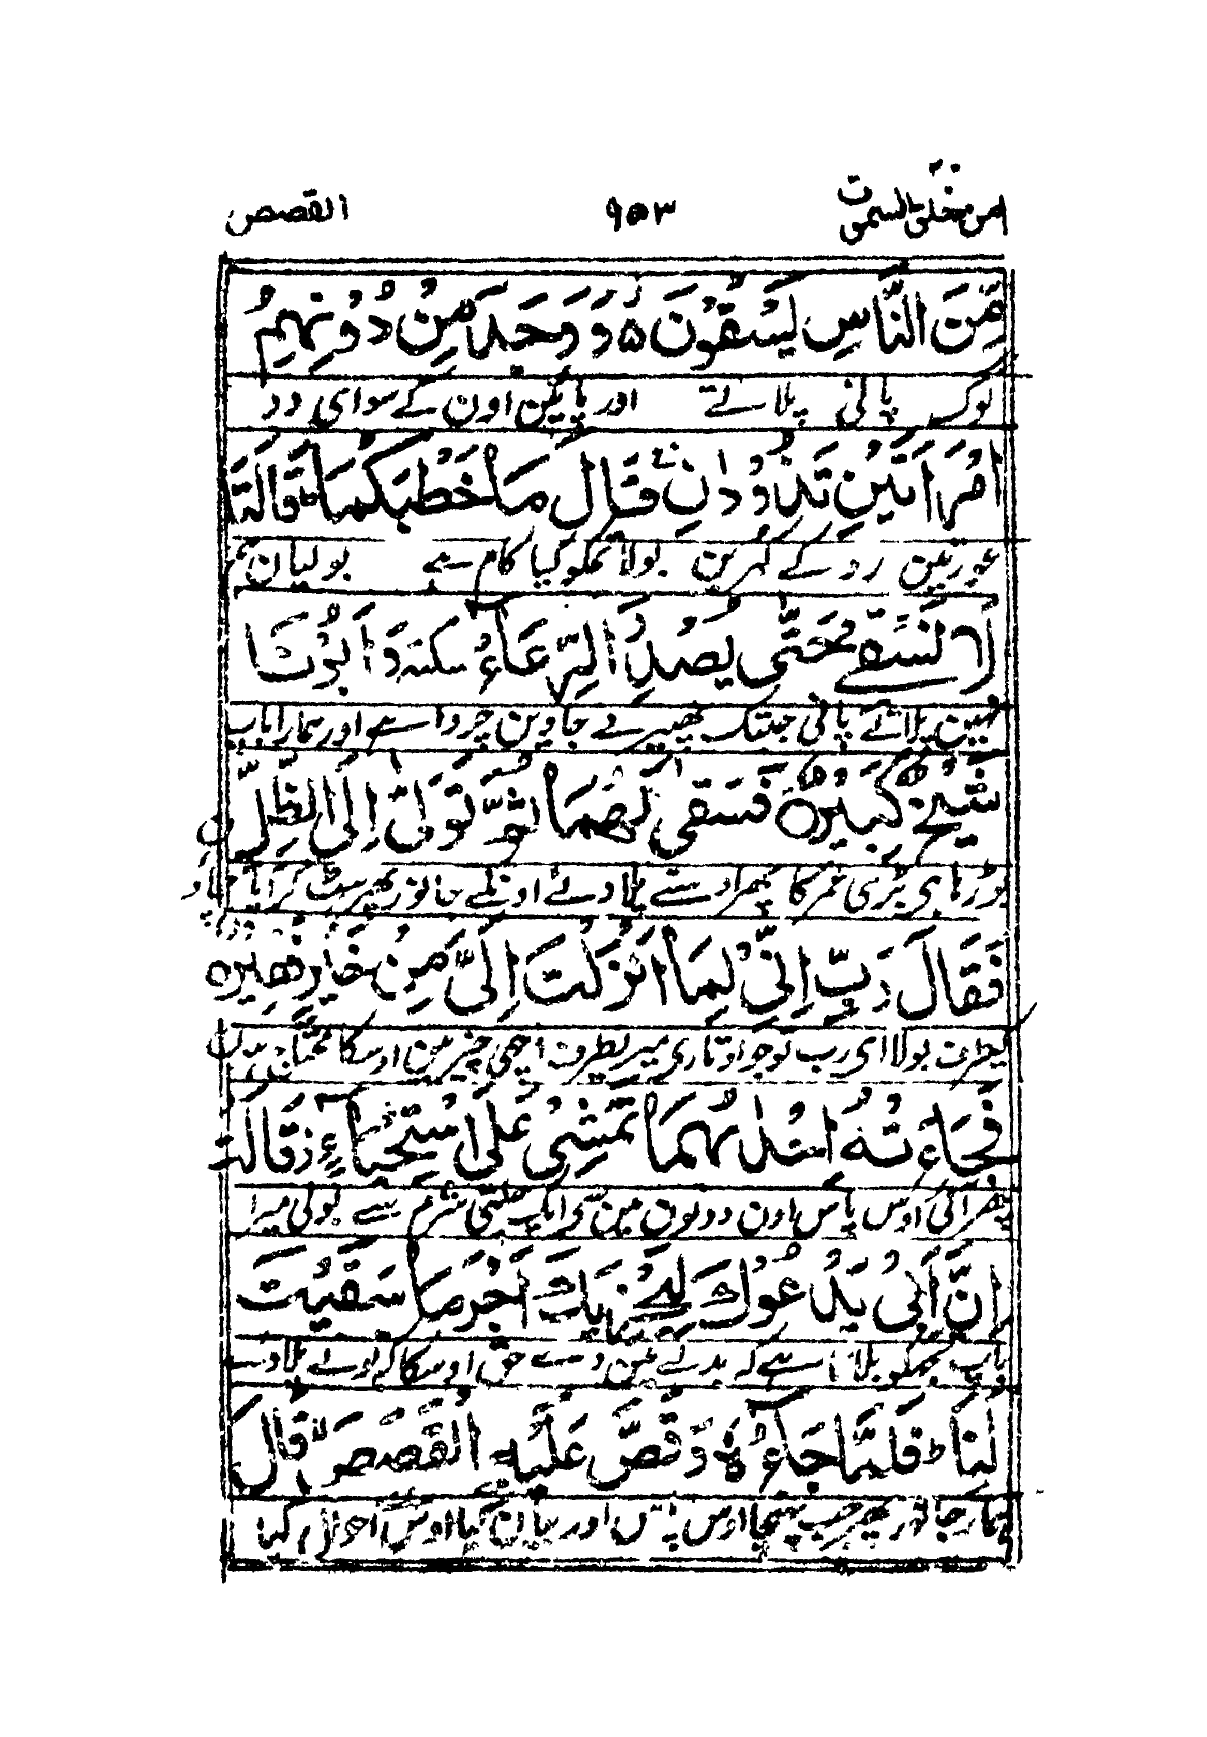 امن خلق السموت ٩٥٣ القصص
مِّنَ النَّاسِ يَسْقُوْنَ ه وَ وَجَدَ مِنْ دُوْنِهِمُ
لوک پانی پلاتے اور پائین اون کے سواے دو
امْرَاَتَيْنِ تَذُوْدٰنِ قَالَ مَا خَطْبُكُمَا ط قَالَتَا
عورتین روکے کہرین بولا تمکو کیا کام ہے بولیان ہم
لَا نَسْقِے حَتّٰى يُصْدِرَ الرِّعَآءُ سكتة وَ اَبُوْنَا
نہین پلاتے پانی جبتک پھیر لے جاوین چرواہے اور ہمارا باپ
شَيْخٌ كَبِيْرٌ ه فَسَقٰى لَهُمَا ثُمَّ تَوَلّٰى اِلَى الظِّلِّ
بوڑھا ہی بڑی عمر کا پھر اوسنے پلا دے اونکے جانور پھر ہٹ کر آیا چھاون
فَقَالَ رَبِّ اِنِّيْ لِمَا اَنْزَلْتَ اِلَيَّ مِنْ خَيْرٍ فَقِيْرٌ ه
کیطرف بولا ای رب توجو اوتاری میریطرف اچھی چیز مین اوسکا محتاج ہون
فَجَآءَتْهُ اِحْدٰىهُمَا تَمْشِيْ عَلَى اسْتِحْيَآءٍ ز قَالَتْ
پھر آئی اوس پاس اون دونون مین سی ایک چلتی شرم سے بولی میرا
اِنَّ اَبِيْ يَدْعُوْكَ لِيَجْزِيَكَ اَجْرَ مَا سَقَيْتَ
باپ تجھکو بلاتا ہے کہ بدلے مین دے حق اوسکا کہ تونے پلادے
لَنَا ط فَلَمَّا جَآءَهٗ وَ قَصَّ عَلَيْهِ الْقَصَصَ لا قَالَ
ہمارے جانور پھر جب پہنچا اوس پاس اور بیان کیا اوس احوال کہا